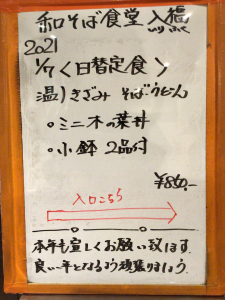 和そば食堂
2021
1/7〈日替定食〉
温)きざみ そば・うどん
・ミニ木の葉丼
・小鉢 2品付
¥860.-
入口こちら
本年も宜しくお願い致します。
良い一年となるよう頑張りましょう。